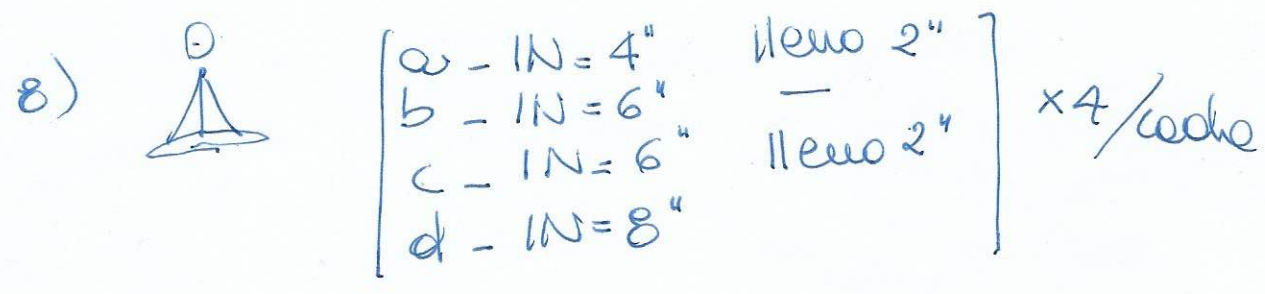 8)
a - IN = 4" lleno 2"
b - IN = 6" —
c - IN = 6" lleno 2"
d - IN = 8"
x4 / cada